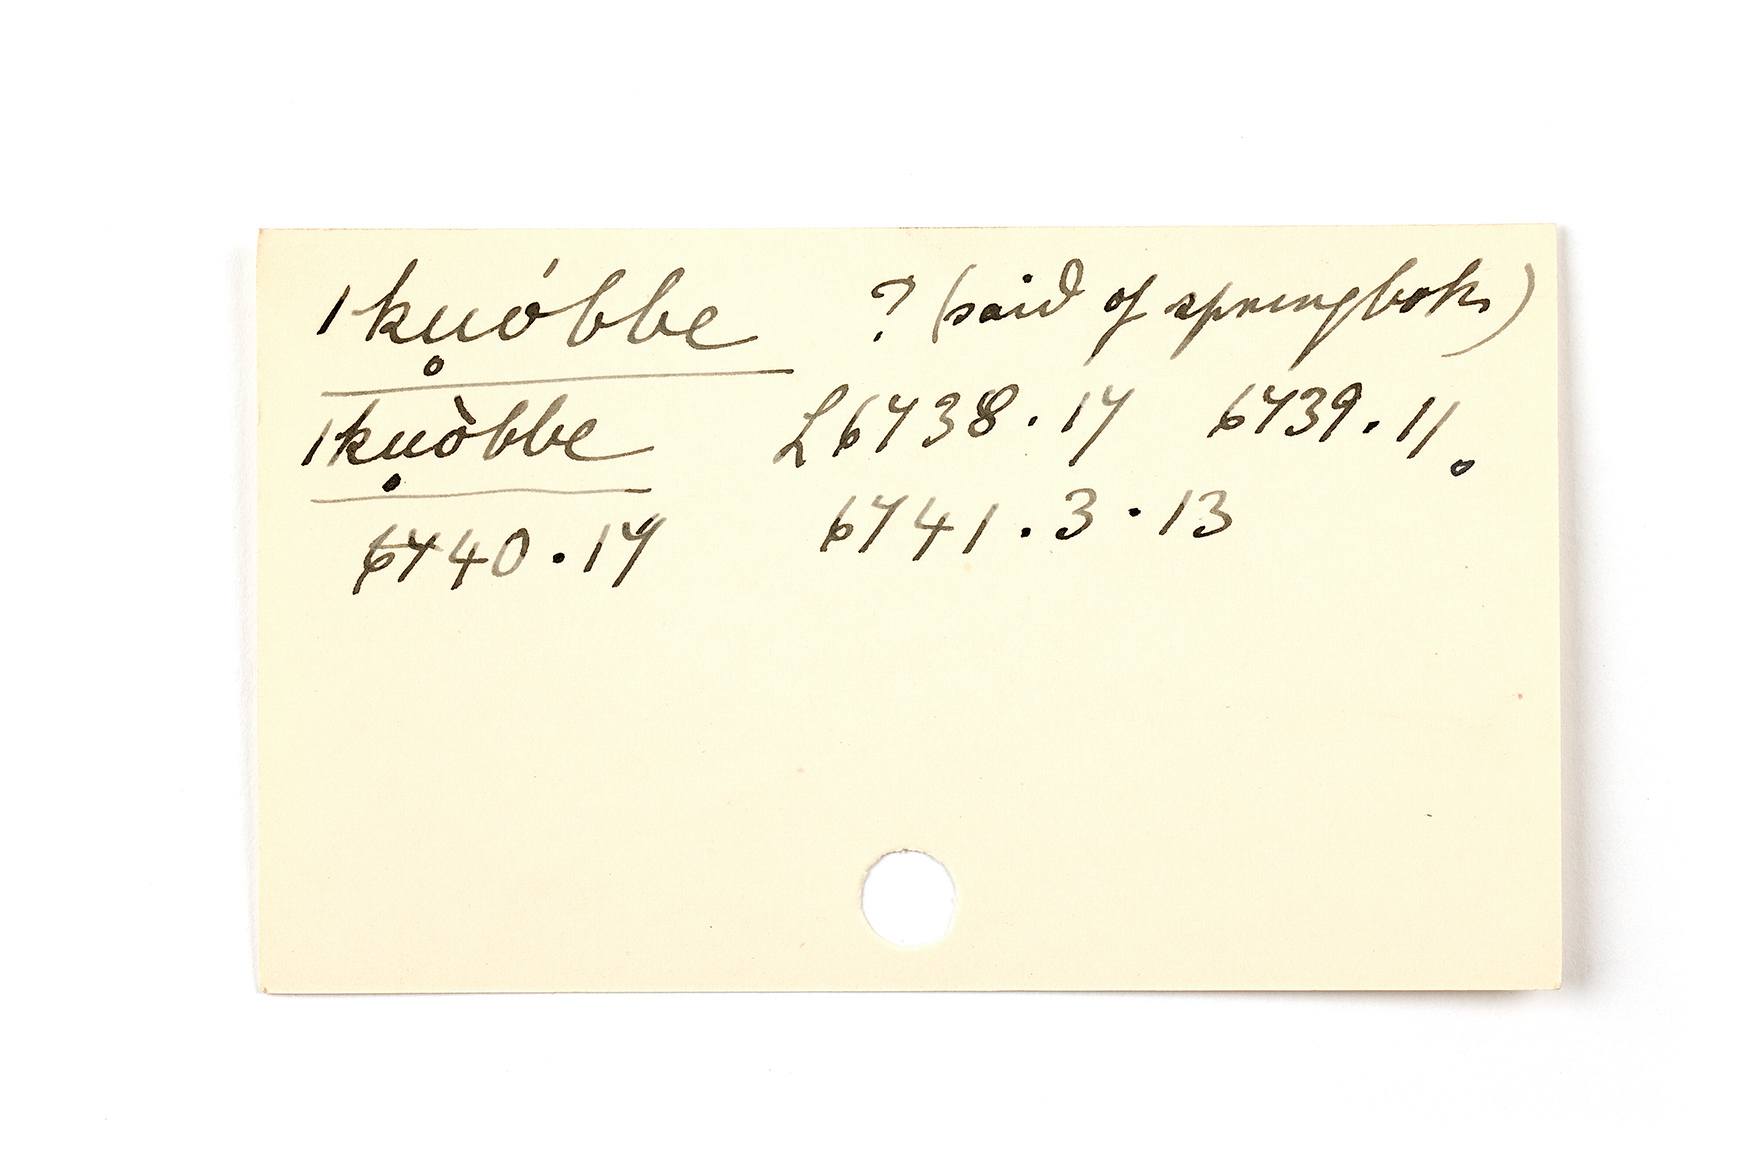 ǀku̥óbbe ? (said of springbok)
ǀkụòbbe L 6738.17 6739.11.
6740.17 6741.3.13